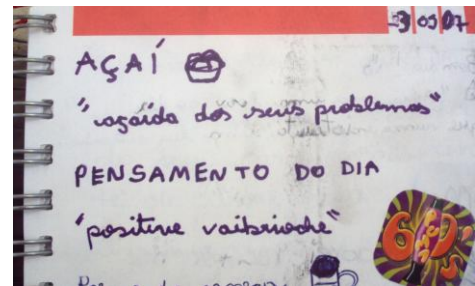 3 05 07
AÇAÍ
"açaída dos seus problemas"
PENSAMENTO DO DIA
"positive vaibrioche"
60's